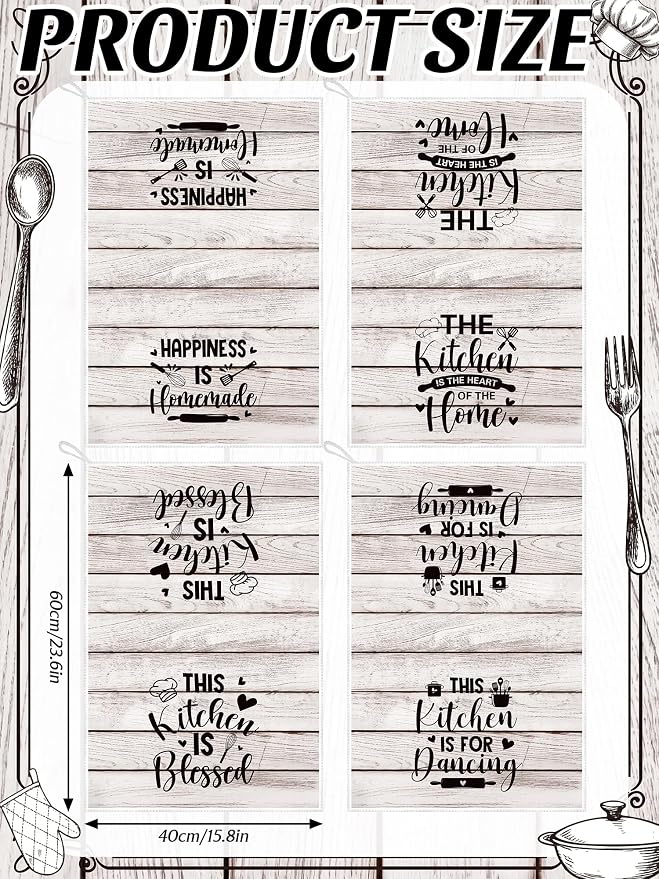 PRODUCT SIZE
Homemade
IS
HAPPINESS
HAPPINESS
IS
Homemade
Home
OF THE
IS THE HEART
Kitchen
THE
THE
Kitchen
IS THE HEART
OF THE
Home
Blessed
IS
Kitchen
THIS
THIS
Kitchen
IS
Blessed
Dancing
IS FOR
Kitchen
THIS
THIS
Kitchen
IS FOR
Dancing
60cm/23.6in
40cm/15.8in